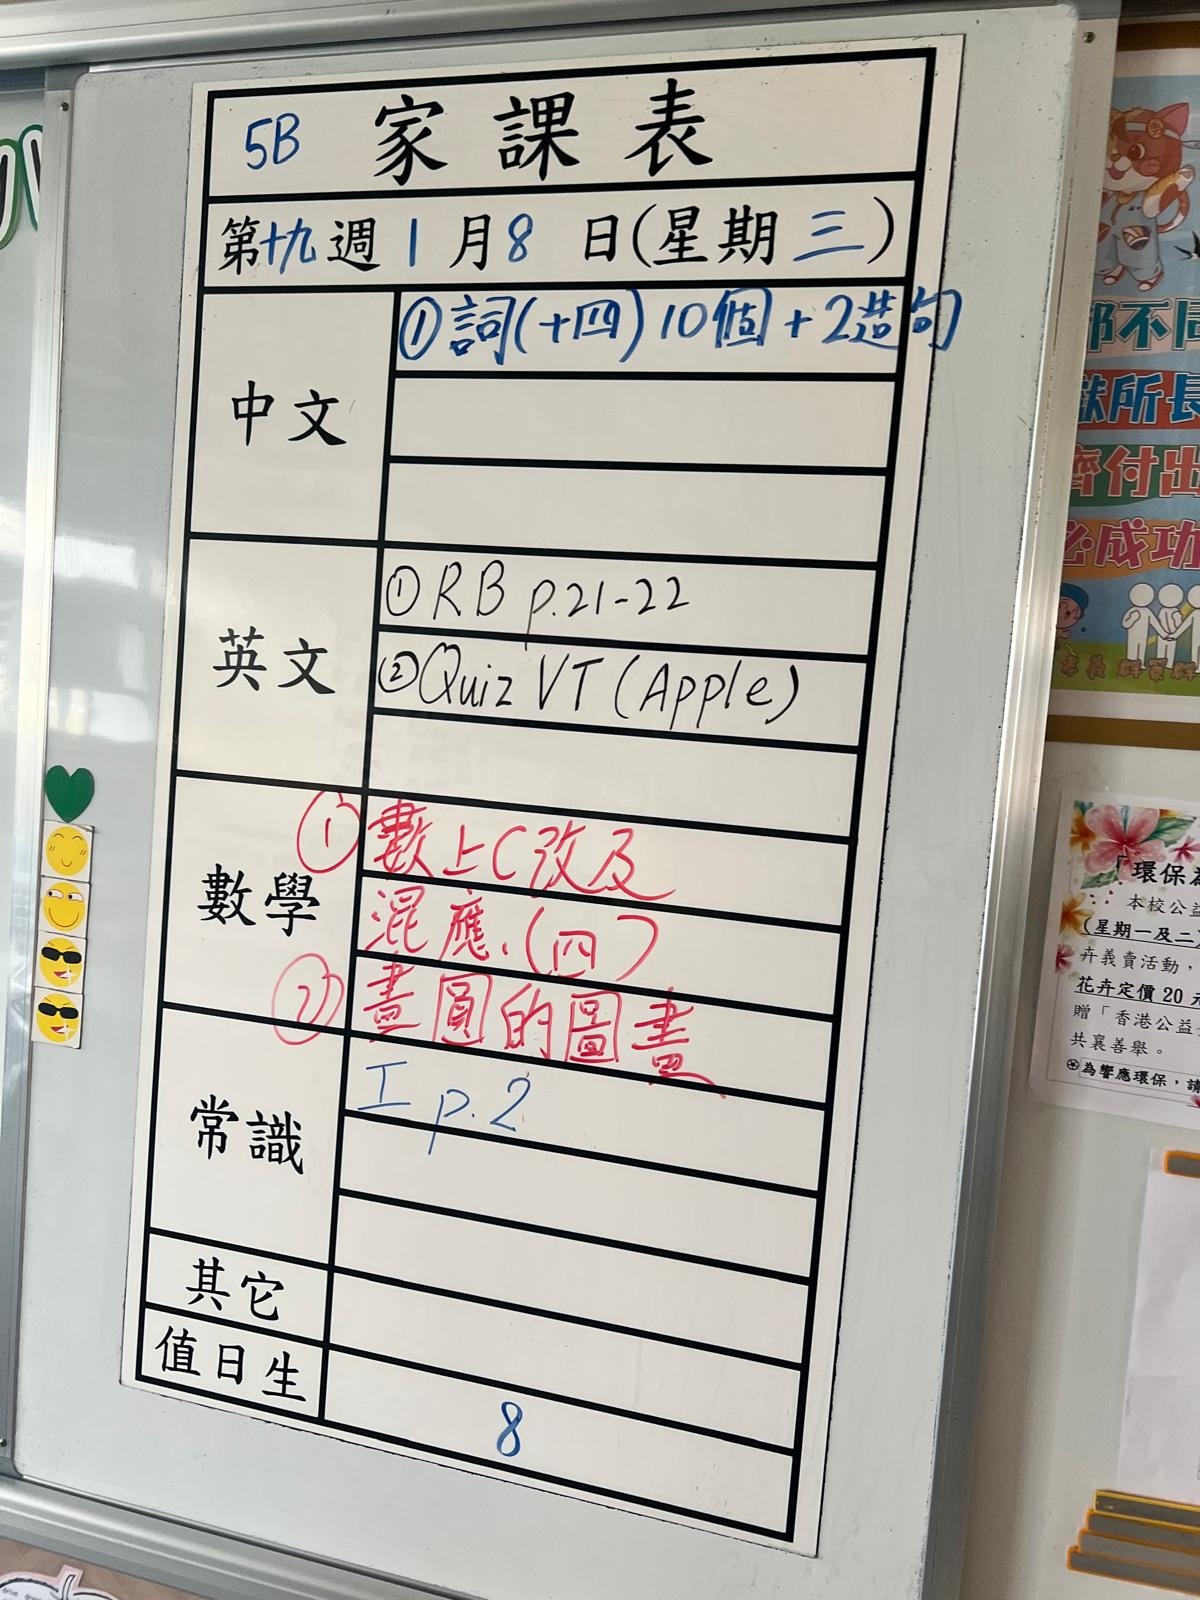 5B 家課表
第十九週 1月8日(星期三)
中文
①詞(十四)10個+2造句
英文
①RB p.21-22
②Quiz VT (Apple)
數學
①數上C改及
混應.(四)
②畫圓的圖畫
常識
I p.2
其它
值日生
8
都不同
獻所長
齊付出
必成功
「環保為
本校公益
(星期一及二)
卉義賣活動，
花卉定價20元
贈「香港公益
共襄善舉。
為響應環保，請